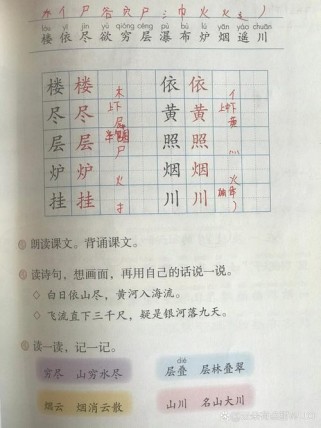 lóu yī jìn yù qióng céng pù bù lú yān yáo chuān
楼 依 尽 欲 穷 层 瀑 布 炉 烟 遥 川
楼 楼 木 依 依 亻
尽 尽 上下 黄 黄
层 层 尸 照 照 灬
炉 炉 火 烟 烟 火
挂 挂 扌 川 川
朗读课文。背诵课文。
读诗句，想画面，再用自己的话说一说。
◇ 白日依山尽，黄河入海流。
◇ 飞流直下三千尺，疑是银河落九天。
读一读，记一记。
dié
穷尽 山穷水尽 层叠 层林叠翠
烟云 烟消云散 山川 名山大川